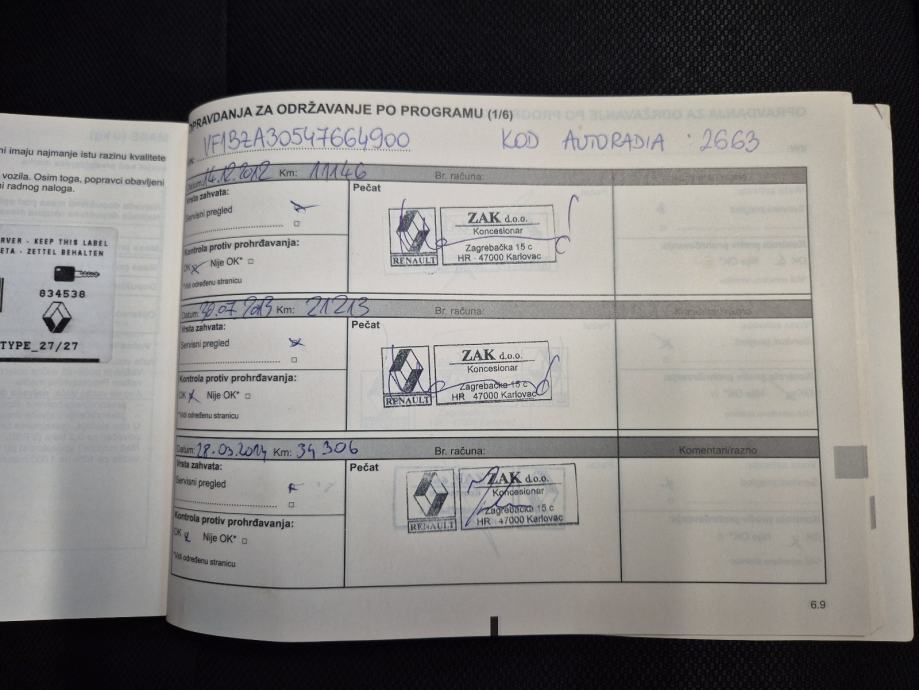 ni imaju najmanje istu razinu kvalitete
vozila. Osim toga, popravci obavljeni
ni radnog naloga.
RVER - KEEP THIS LABEL
ETA - ZETTEL BEHALTEN
834538
TYPE_27/27
OPRAVDANJA ZA ODRŽAVANJE PO PROGRAMU (1/6)
VF1BZA30547664900 KOD AUTORADIA : 2663
Datum: 14.12.2012 Km: 11146 Br. računa:
Vrsta zahvata:
Servisni pregled
Kontrola protiv prohrđavanja:
OK Nije OK*
*Vidi određenu stranicu
Pečat
RENAULT
ZAK d.o.o.
Koncesionar
Zagrebačka 15 c
HR - 47000 Karlovac
Datum: 30.07.2013 Km: 21213 Br. računa:
Vrsta zahvata:
Servisni pregled
Kontrola protiv prohrđavanja:
OK Nije OK*
*Vidi određenu stranicu
Pečat
RENAULT
ZAK d.o.o.
Koncesionar
Zagrebačka 15 c
HR 47000 Karlovac
Datum: 28.03.2014 Km: 34306 Br. računa: Komentari/razno
Vrsta zahvata:
Servisni pregled
Kontrola protiv prohrđavanja:
OK Nije OK*
*Vidi određenu stranicu
Pečat
RENAULT
ZAK d.o.o.
Koncesionar
Zagrebačka 15 c
HR - 47000 Karlovac
6.9